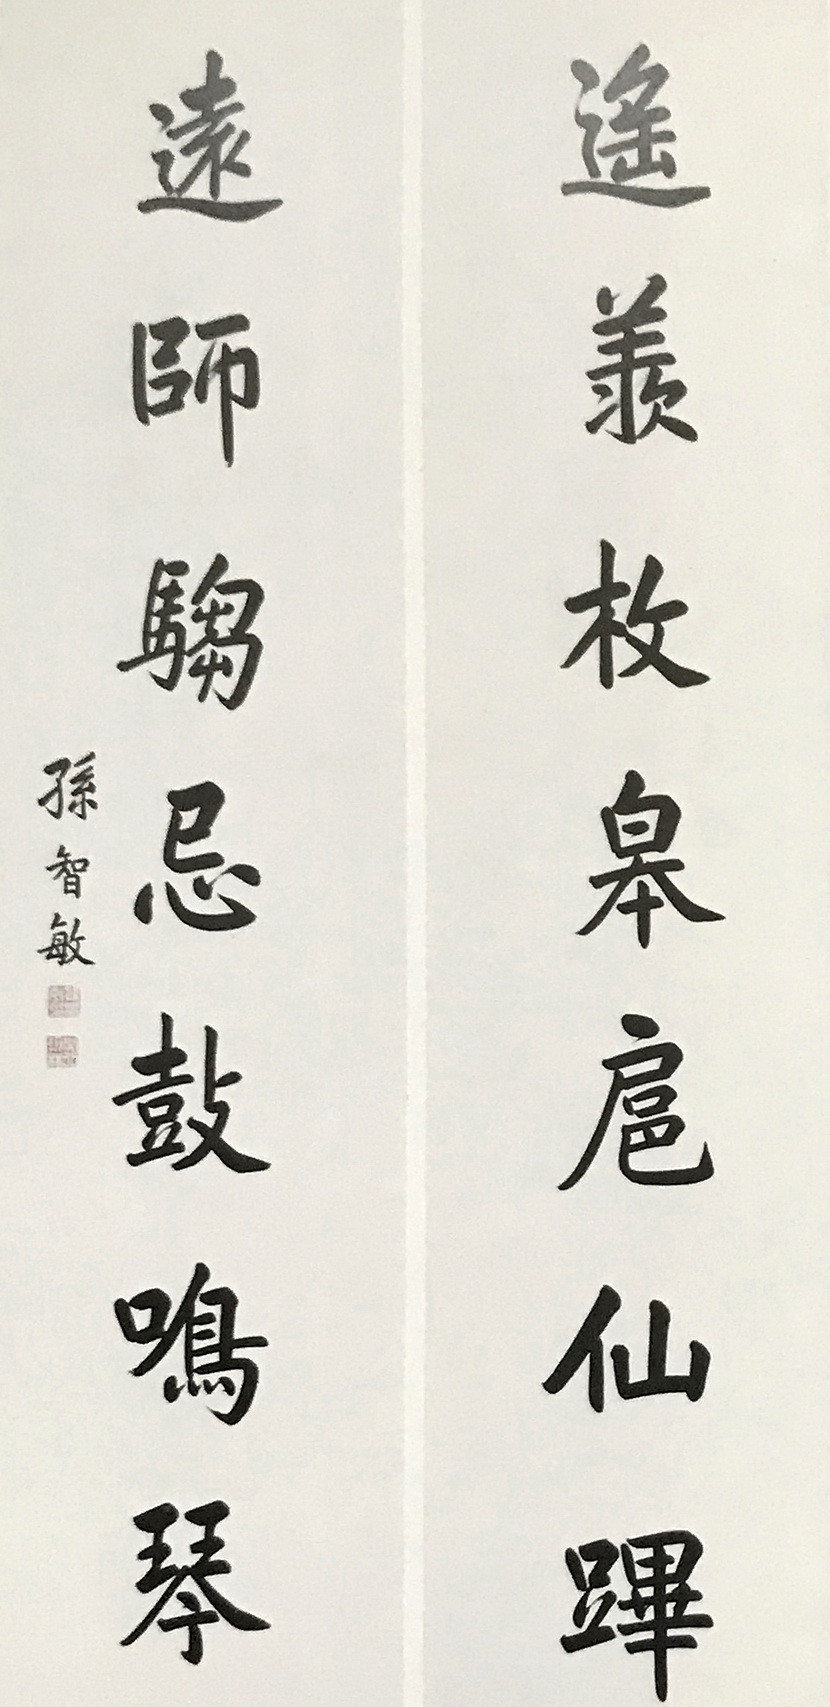 遙羨枚皋扈仙蹕
遠師騶忌鼓鳴琴
孫智敏